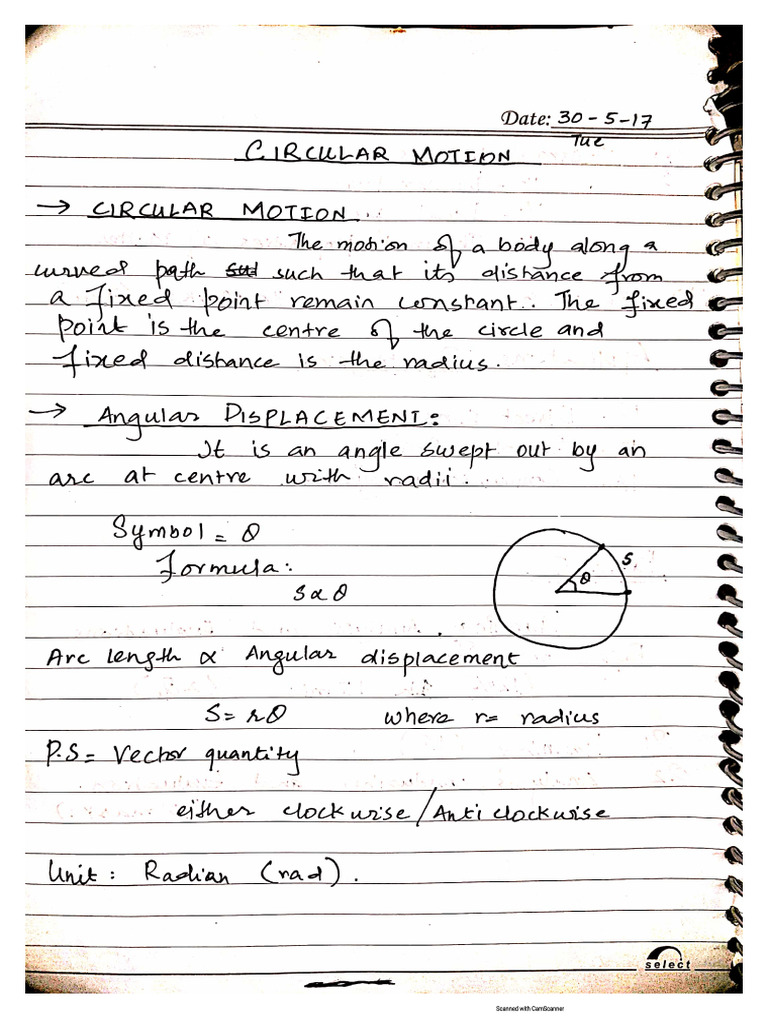 Date: 30-5-17
Tue
CIRCULAR MOTION
→ CIRCULAR MOTION
The motion of a body along a
curved path such that its distance from
a fixed point remain constant. The fixed
point is the centre of the circle and
fixed distance is the radius.
→ Angular DISPLACEMENT:
It is an angle swept out by an
arc at centre with radii.
Symbol = θ
Formula:
S∝θ
S
θ
Arc length ∝ Angular displacement
S = rθ where r = radius
P.S = Vector quantity
either clockwise/Anti clockwise
Unit: Radian (rad).
select
Scanned with CamScanner